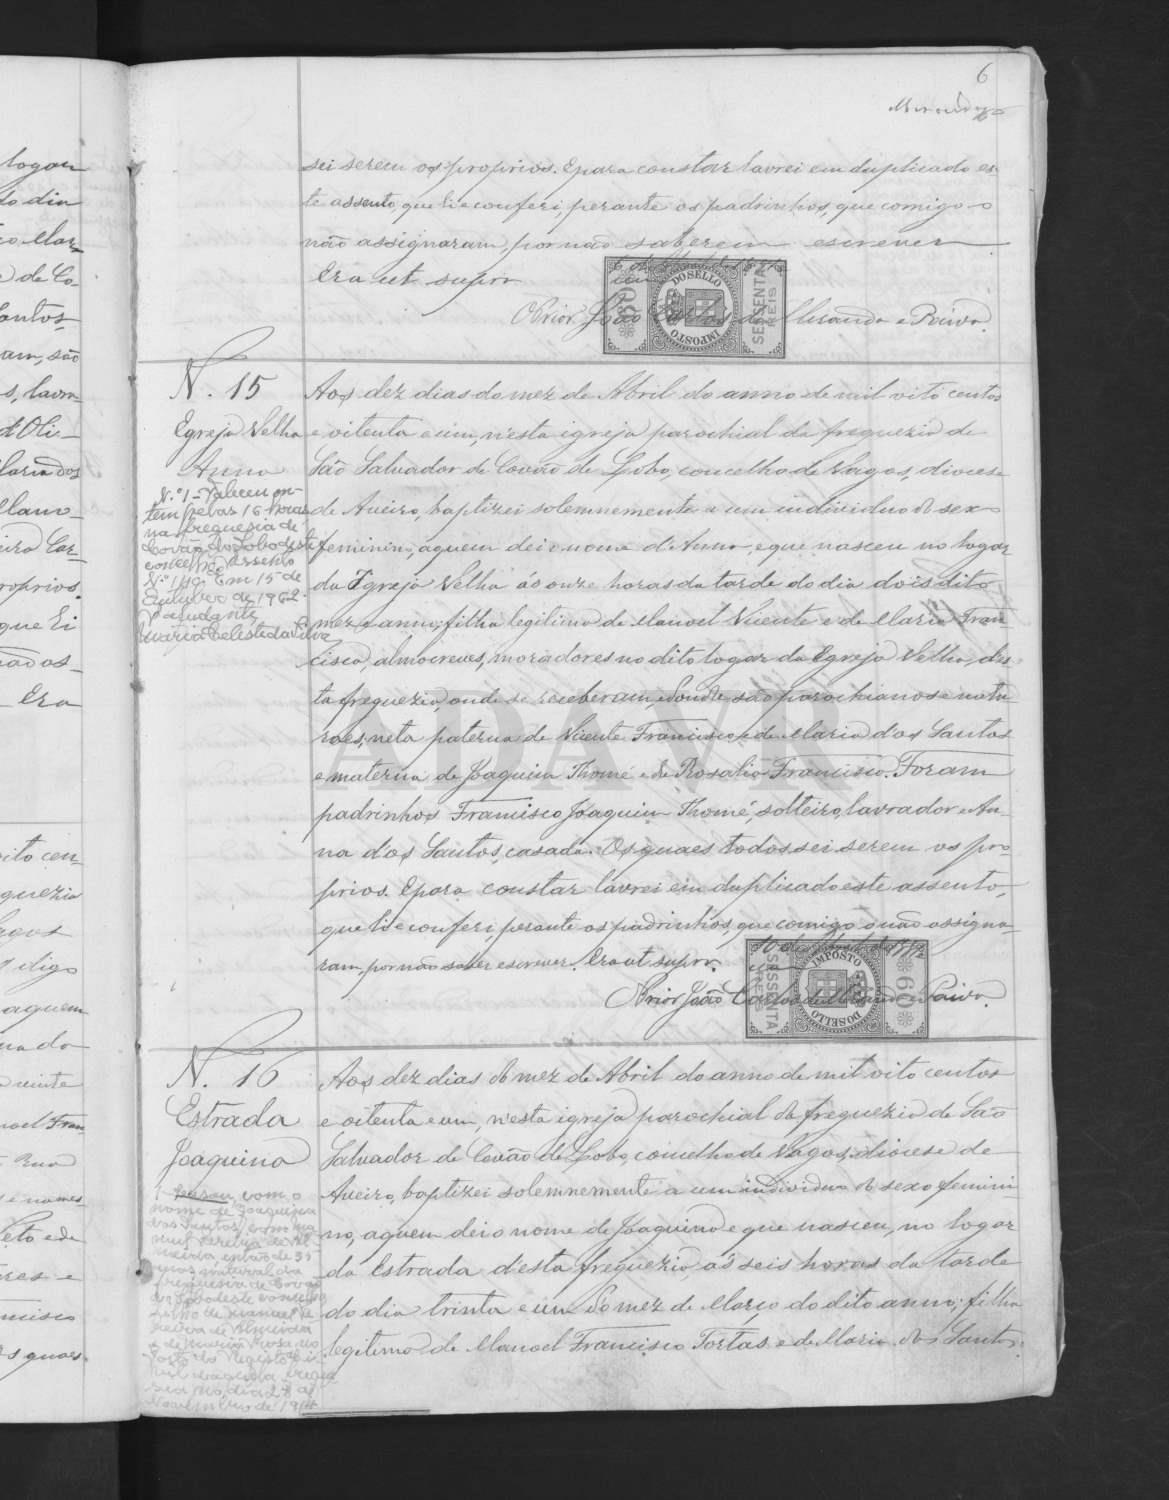 6
Miranda
sei serem os proprios. E para constar lavrei em duplicado es-
te assento, que li e conferi, perante os padrinhos, que comigo o
não assignaram, por não saberem escrever
Era ut supra
O Prior João Carlos de Miranda e Paiva.
DO SELLO
IMPOSTO
60
SESSENTA
REIS
N. 15
Egreja Velha
Anna
N.º 1 - Faleceu on-
tem pelas 16 horas
na freguesia de
Covão do Lobo deste
concelho Assento
Em 15 de
Outubro de 1962.
O ajudante
Maria Celeste da Silva
Aos dez dias do mez de Abril do anno de mil oito centos
e oitenta e um, n'esta igreja parochial da freguezia de
São Salvador de Covão de Lobo, concelho de Vagos, diocese
de Aveiro, baptizei solemnemente a um individuo do sexo
feminino, a quem dei o nome d'Anna, e que nasceu no logar
da Egreja Velha ás onze horas da tarde do dia dois dito
mez e anno; filha legitima de Manoel Vicente e de Maria Fran-
cisca, almocreves, moradores no dito logar da Egreja Velha, des-
ta freguezia, onde se receberam, e d'onde são parochianos e natu-
raes, neta paterna de Vicente Francisco e de Maria dos Santos
e materna de Joaquim Thomé e de Rosalia Francisca. Foram
padrinhos Francisco Joaquim Thomé, solteiro, lavrador e An-
na d'os Santos, casada. Os quaes todos sei serem os pro-
prios. E para constar lavrei em duplicado este assento,
que li e conferi, perante os padrinhos, que comigo o não assigna-
ram, por não saber escrever. Era ut supra.
O Prior João Carlos de Miranda e Paiva.
IMPOSTO
DO SELLO
SESSENTA
REIS
60
N. 16
Estrada
Joaquina
Casou com o
nome de Joaquina
dos Santos, com Ma-
nuel Pereira de Al-
meida, então de 35
anos, natural da
freguesia de Covão
do Lobo deste concelho
filho de Manuel Pe-
reira de Almeida
e de Maria Rosa, no
Posto do Registo Ci-
vil
no dia 28 de
Novembro de
Aos dez dias do mez de Abril do anno de mil oito centos
e oitenta e um, n'esta igreja parochial da freguezia de São
Salvador de Covão de Lobo, concelho de Vagos, diocese de
Aveiro, baptizei solemnemente a um individuo do sexo femini
no, a quem dei o nome de Joaquina e que nasceu, no logar
da Estrada d'esta freguezia, ás seis horas da tarde
do dia trinta e um do mez de Março do dito anno; filha
legitima de Manoel Francisco Tortas e de Maria dos Santos.
ADAVR